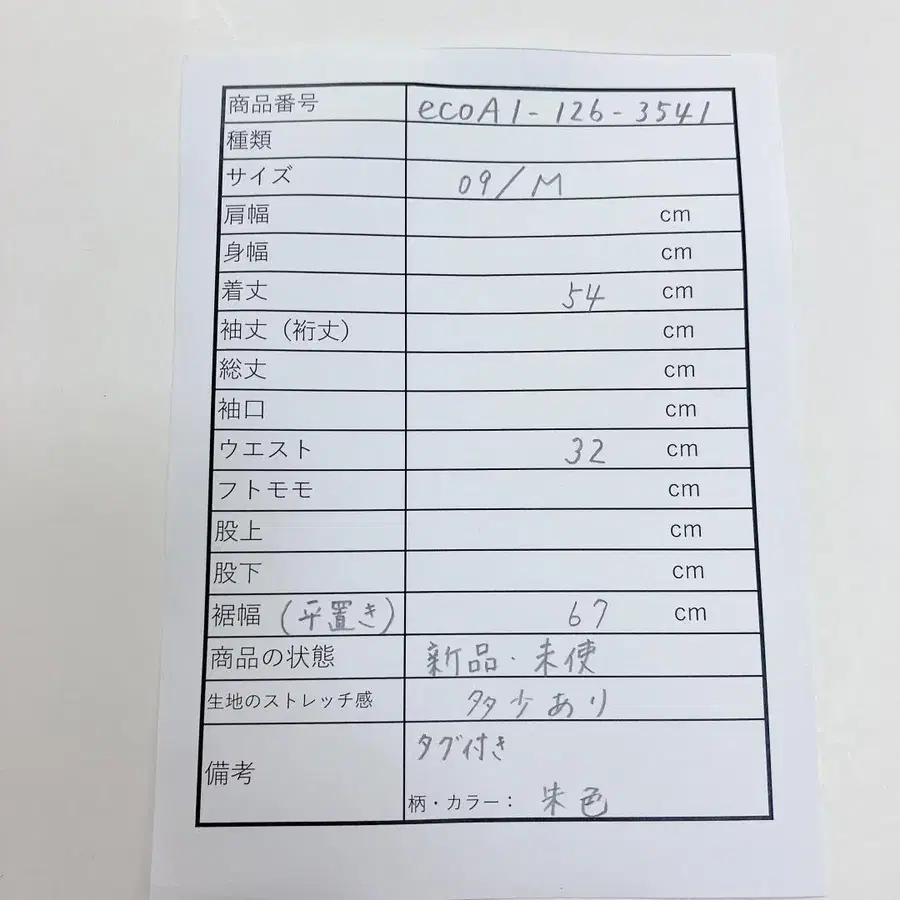 商品番号 ecoA1-126-3541
種類
サイズ 09/M
肩幅 cm
身幅 cm
着丈 54 cm
袖丈（裄丈） cm
総丈 cm
袖口 cm
ウエスト 32 cm
フトモモ cm
股上 cm
股下 cm
裾幅 (平置き) 67 cm
商品の状態 新品・未使
生地のストレッチ感 多少あり
備考 タグ付き
柄・カラー： 朱色